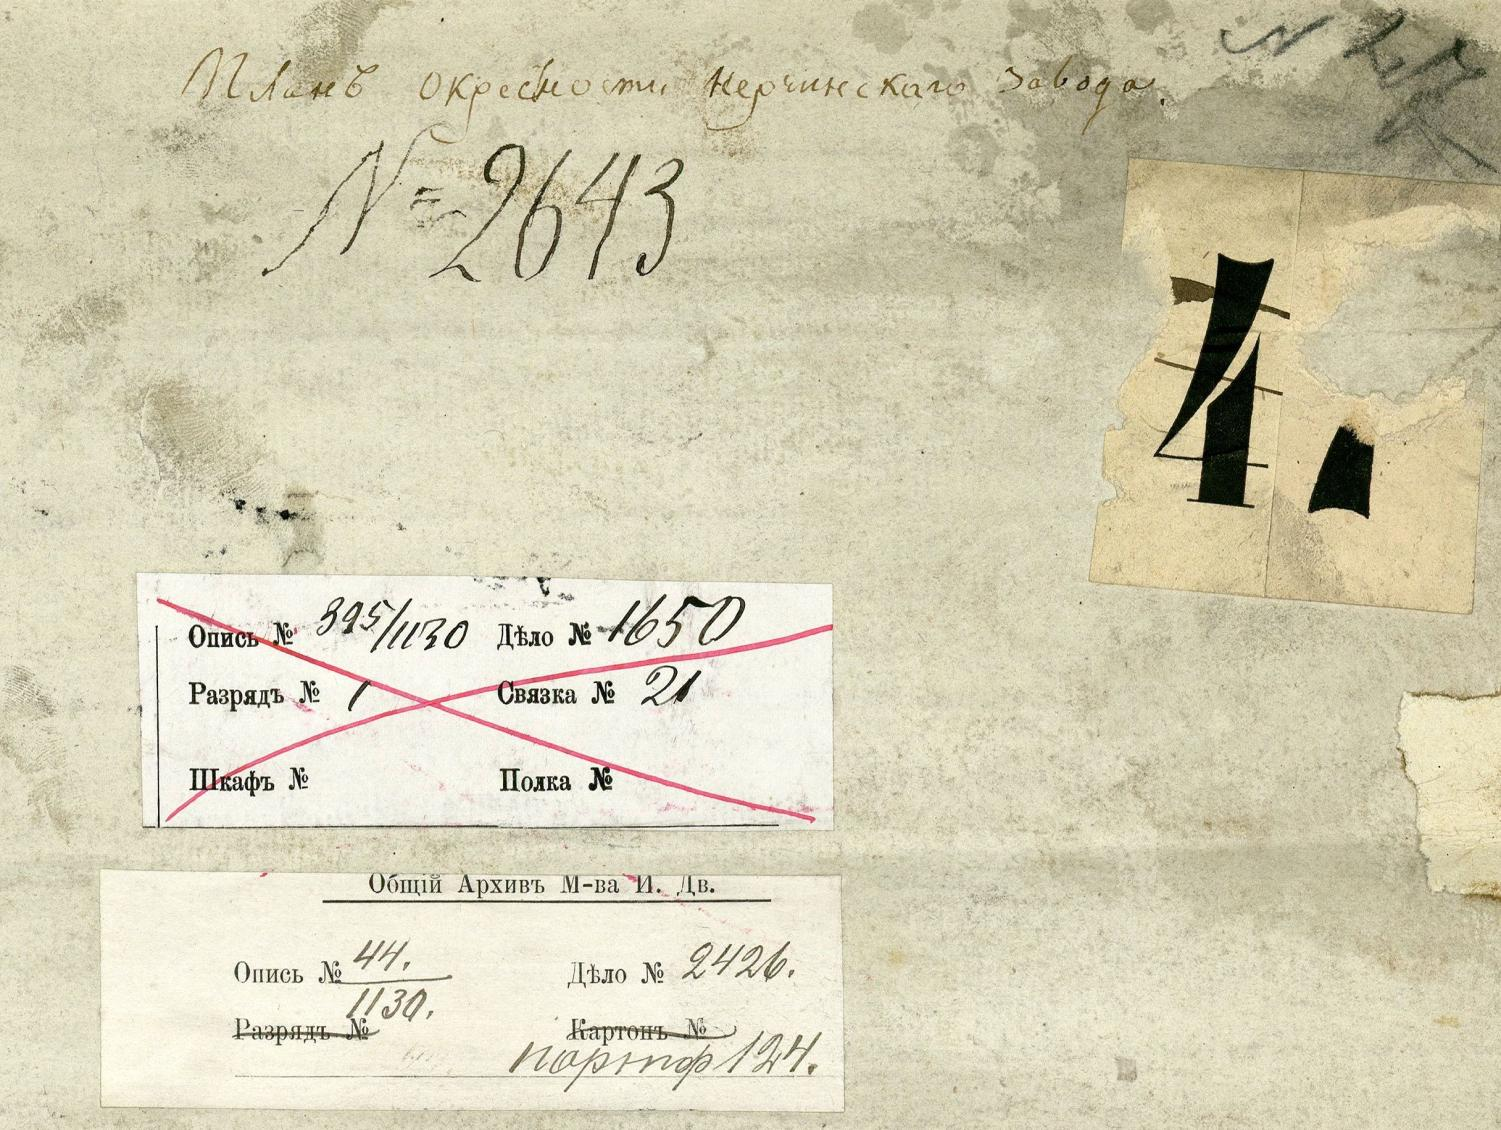 Планъ окресности Нерчинскаго Завода.
№ 2643
4.
Опись № 395/1130 Дѣло № 1650
Разрядъ № 1 Связка № 21
Шкафъ № Полка №
Общій Архивъ М-ва И. Дв.
Опись № 44. Дѣло № 2426.
1130.
Разрядъ № Картонъ №
портф 124.